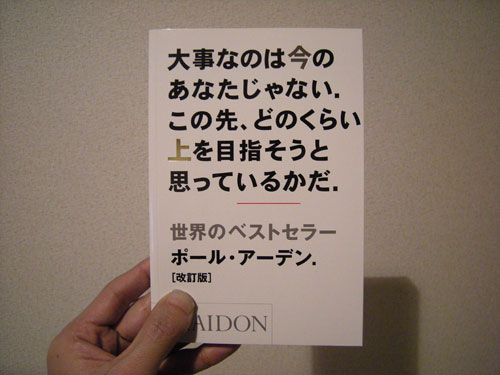 大事なのは今の
あなたじゃない.
この先、どのくらい
上を目指そうと
思っているかだ.
世界のベストセラー
ポール・アーデン.
[改訂版]
AIDON